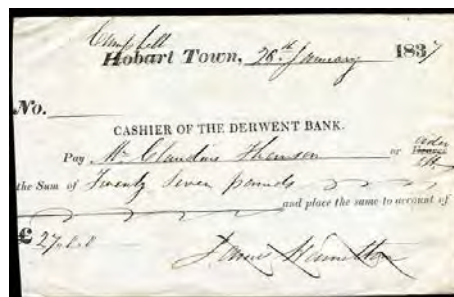 Campbell
Hobart Town, 28th January 1837
No.
CASHIER OF THE DERWENT BANK.
order
Pay Mr Claudius Thomson or Bearer
the Sum of Twenty Seven pounds
and place the same to account of
£ 27.
James Hamilton